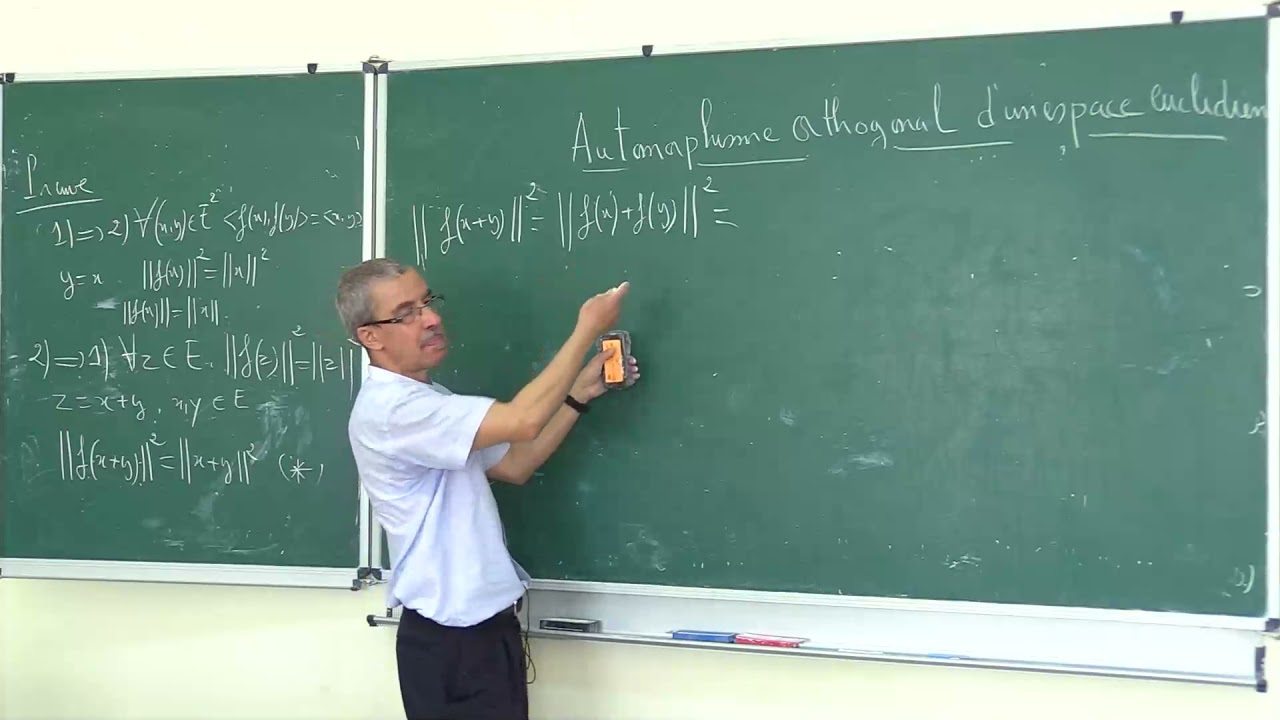 Preuve
1) => 2) ∀(x,y) ∈ E² <f(x), f(y)> = <x,y>
y = x ||f(x)||² = ||x||²
||f(x)|| = ||x||.
2) => 1) ∀z ∈ E. ||f(z)||² = ||z||
z = x+y, x,y ∈ E
||f(x+y)||² = ||x+y||² (*)
Automorphisme orthogonal d'un espace euclidien
||f(x+y)||² = ||f(x)+f(y)||² =